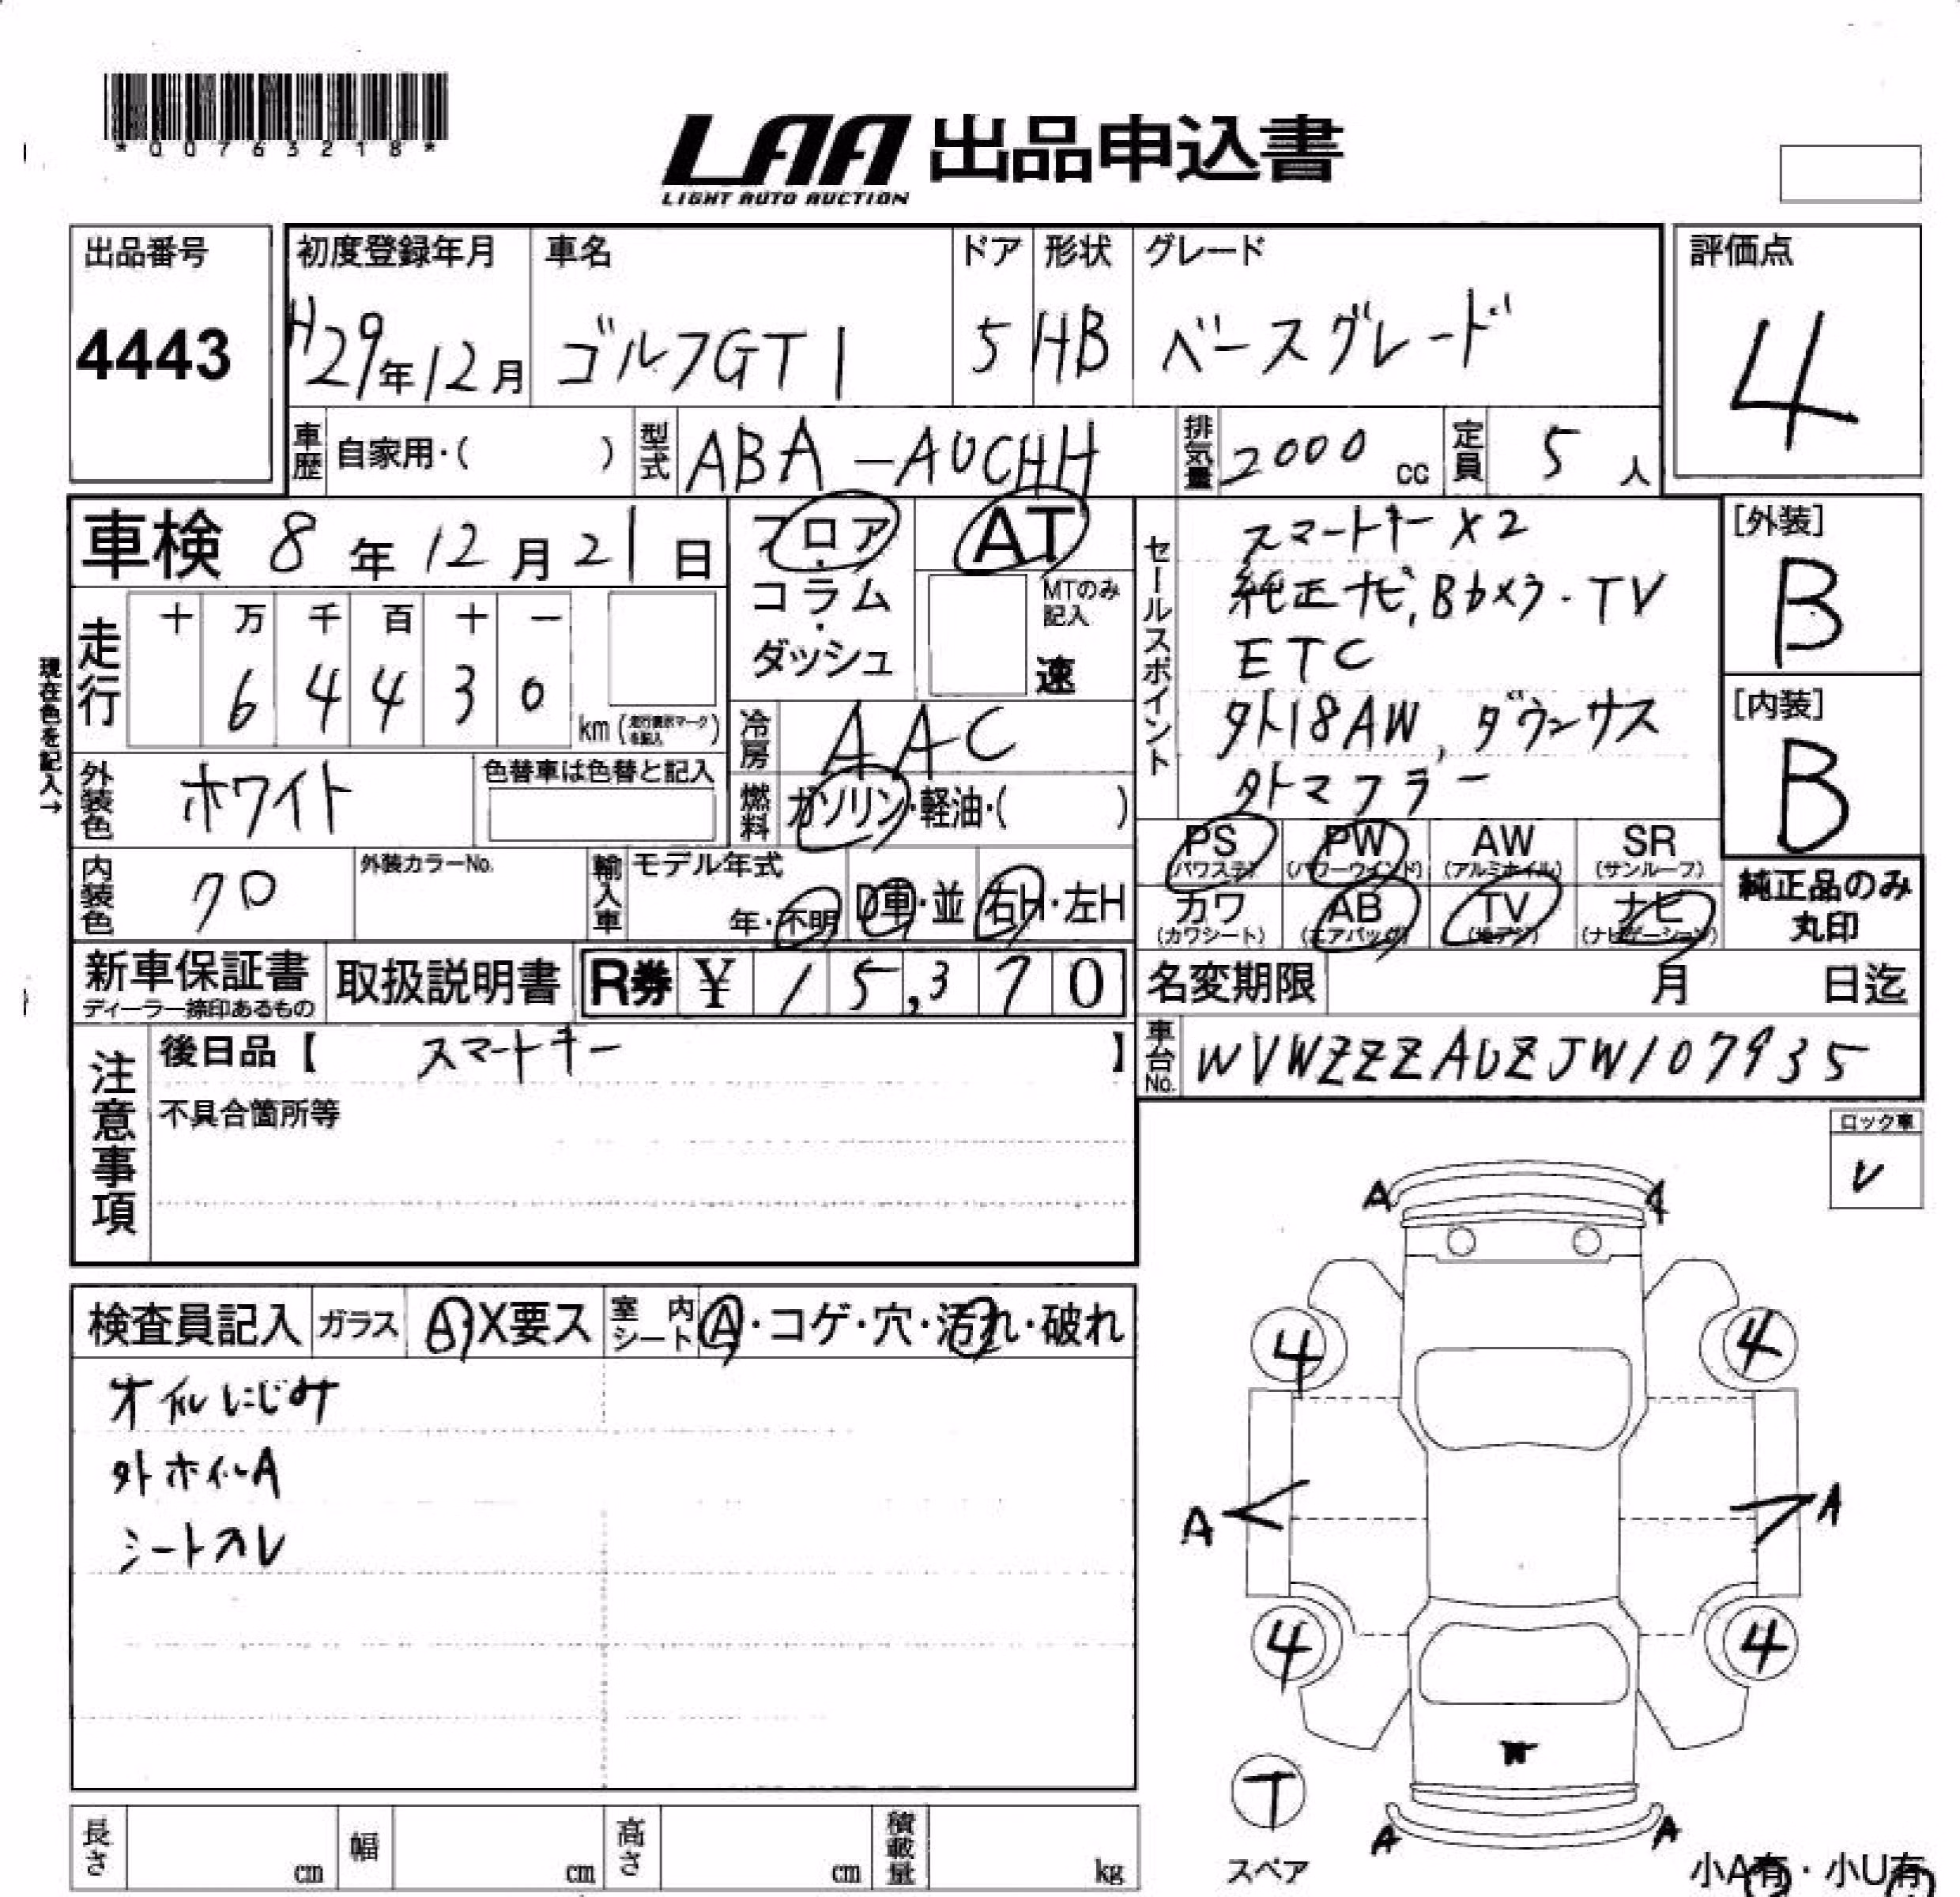 *00763218*
LAA 出品申込書
LIGHT AUTO AUCTION
出品番号
4443
初度登録年月
H29年12月
車名
ゴルフGTI
ドア
5
形状
HB
グレード
ベースグレード
評価点
4
車歴 自家用・( )
型式 ABA-AUCHH
排気量 2000 cc
定員 5 人
車検 8年12月21日
フロア・コラム・ダッシュ
AT
MTのみ記入
速
セールスポイント
スマートキーX2
純正ナビ,Bカメラ・TV
ETC
外18AW, ダウンサス
外マフラー
[外装]
B
[内装]
B
現在色を記入→
走行
十 万 千 百 十 一
6 4 4 3 0
km (走行表示マークを記入)
冷房 AAC
燃料 ガソリン・軽油・( )
外装色 ホワイト
色替車は色替と記入
内装色 クロ
外装カラーNo.
輸入車
モデル年式
年・不明
D車・並
右H・左H
PS (パワステ)
PW (パワーウインド)
AW (アルミホイル)
SR (サンルーフ)
カワ (カワシート)
AB (エアバッグ)
TV (地デジ)
ナビ (ナビゲーション)
純正品のみ丸印
新車保証書
ディーラー捺印あるもの
取扱説明書
R券 ¥ 15,370
名変期限 月 日迄
車台No. WVWZZZAUZJW107935
注意事項
後日品【 スマートキー 】
不具合箇所等
ロック車
レ
検査員記入
ガラス A・X要ス
室内シート A・コゲ・穴・汚れ・破れ
オイルにじみ
外ホイルA
シートスレ
A
A
4
4
A
A
4
4
W
T
スペア
A
A
小A有・小U有
長さ cm
幅 cm
高さ cm
積載量 kg